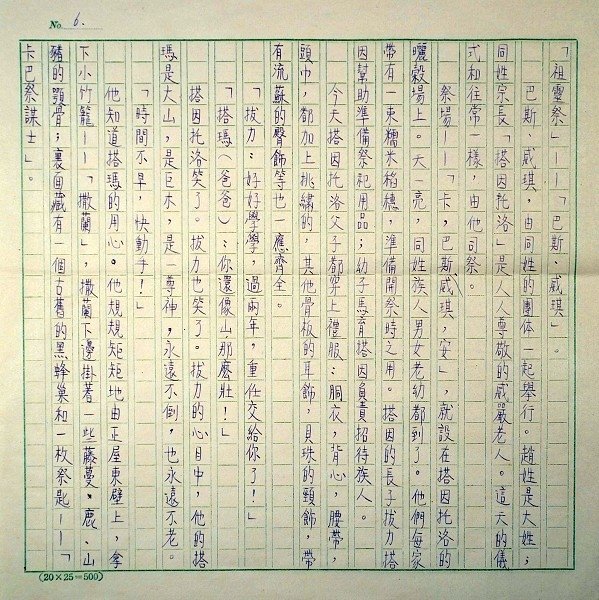 No. 6.
「祖靈祭」──「巴斯·威琪」。
巴斯·威琪,由同姓的團体一起舉行。趙姓是大姓;
同姓宗長「塔因托洛」是人人尊敬的威嚴老人。這天的儀
式和往常一樣,由他司祭。
祭場──「卡,巴斯威琪,安」,就設在塔因托洛的
曬穀場上。天一亮,同姓族人男女老幼都到了。他們每家
帶有一束糯米稻穗,準備開祭時之用。塔因的長子拔力塔
因幫助準備祭祀用品;幼子馬育塔因負責招待族人。
今天塔因托洛父子都穿上禮服:胴衣,背心,腰帶,
頭巾,都加上挑繡的,其他骨板的耳飾,貝珠的頸飾,帶
有流蘇的臀飾等也一應齊全。
「拔力:好好學學,過兩年,重任交給你了!」
「搭瑪(爸爸):你還像山那麼壯!」
塔因托洛笑了。拔力也笑了。拔力的心目中,他的搭
瑪是大山,是巨木,是一尊神,永遠不倒,也永遠不老。
「時間不早,快動手!」
他知道搭瑪的用心。他規規矩矩地由正屋東壁上,拿
下小竹籠──「撒蘭」,撒蘭下邊掛著一些藤蔓。鹿、山
豬的顎骨;裏面藏有一個古舊的黑蜂巢和一枚祭匙──「
卡巴祭謀士」。
(20×25=500)